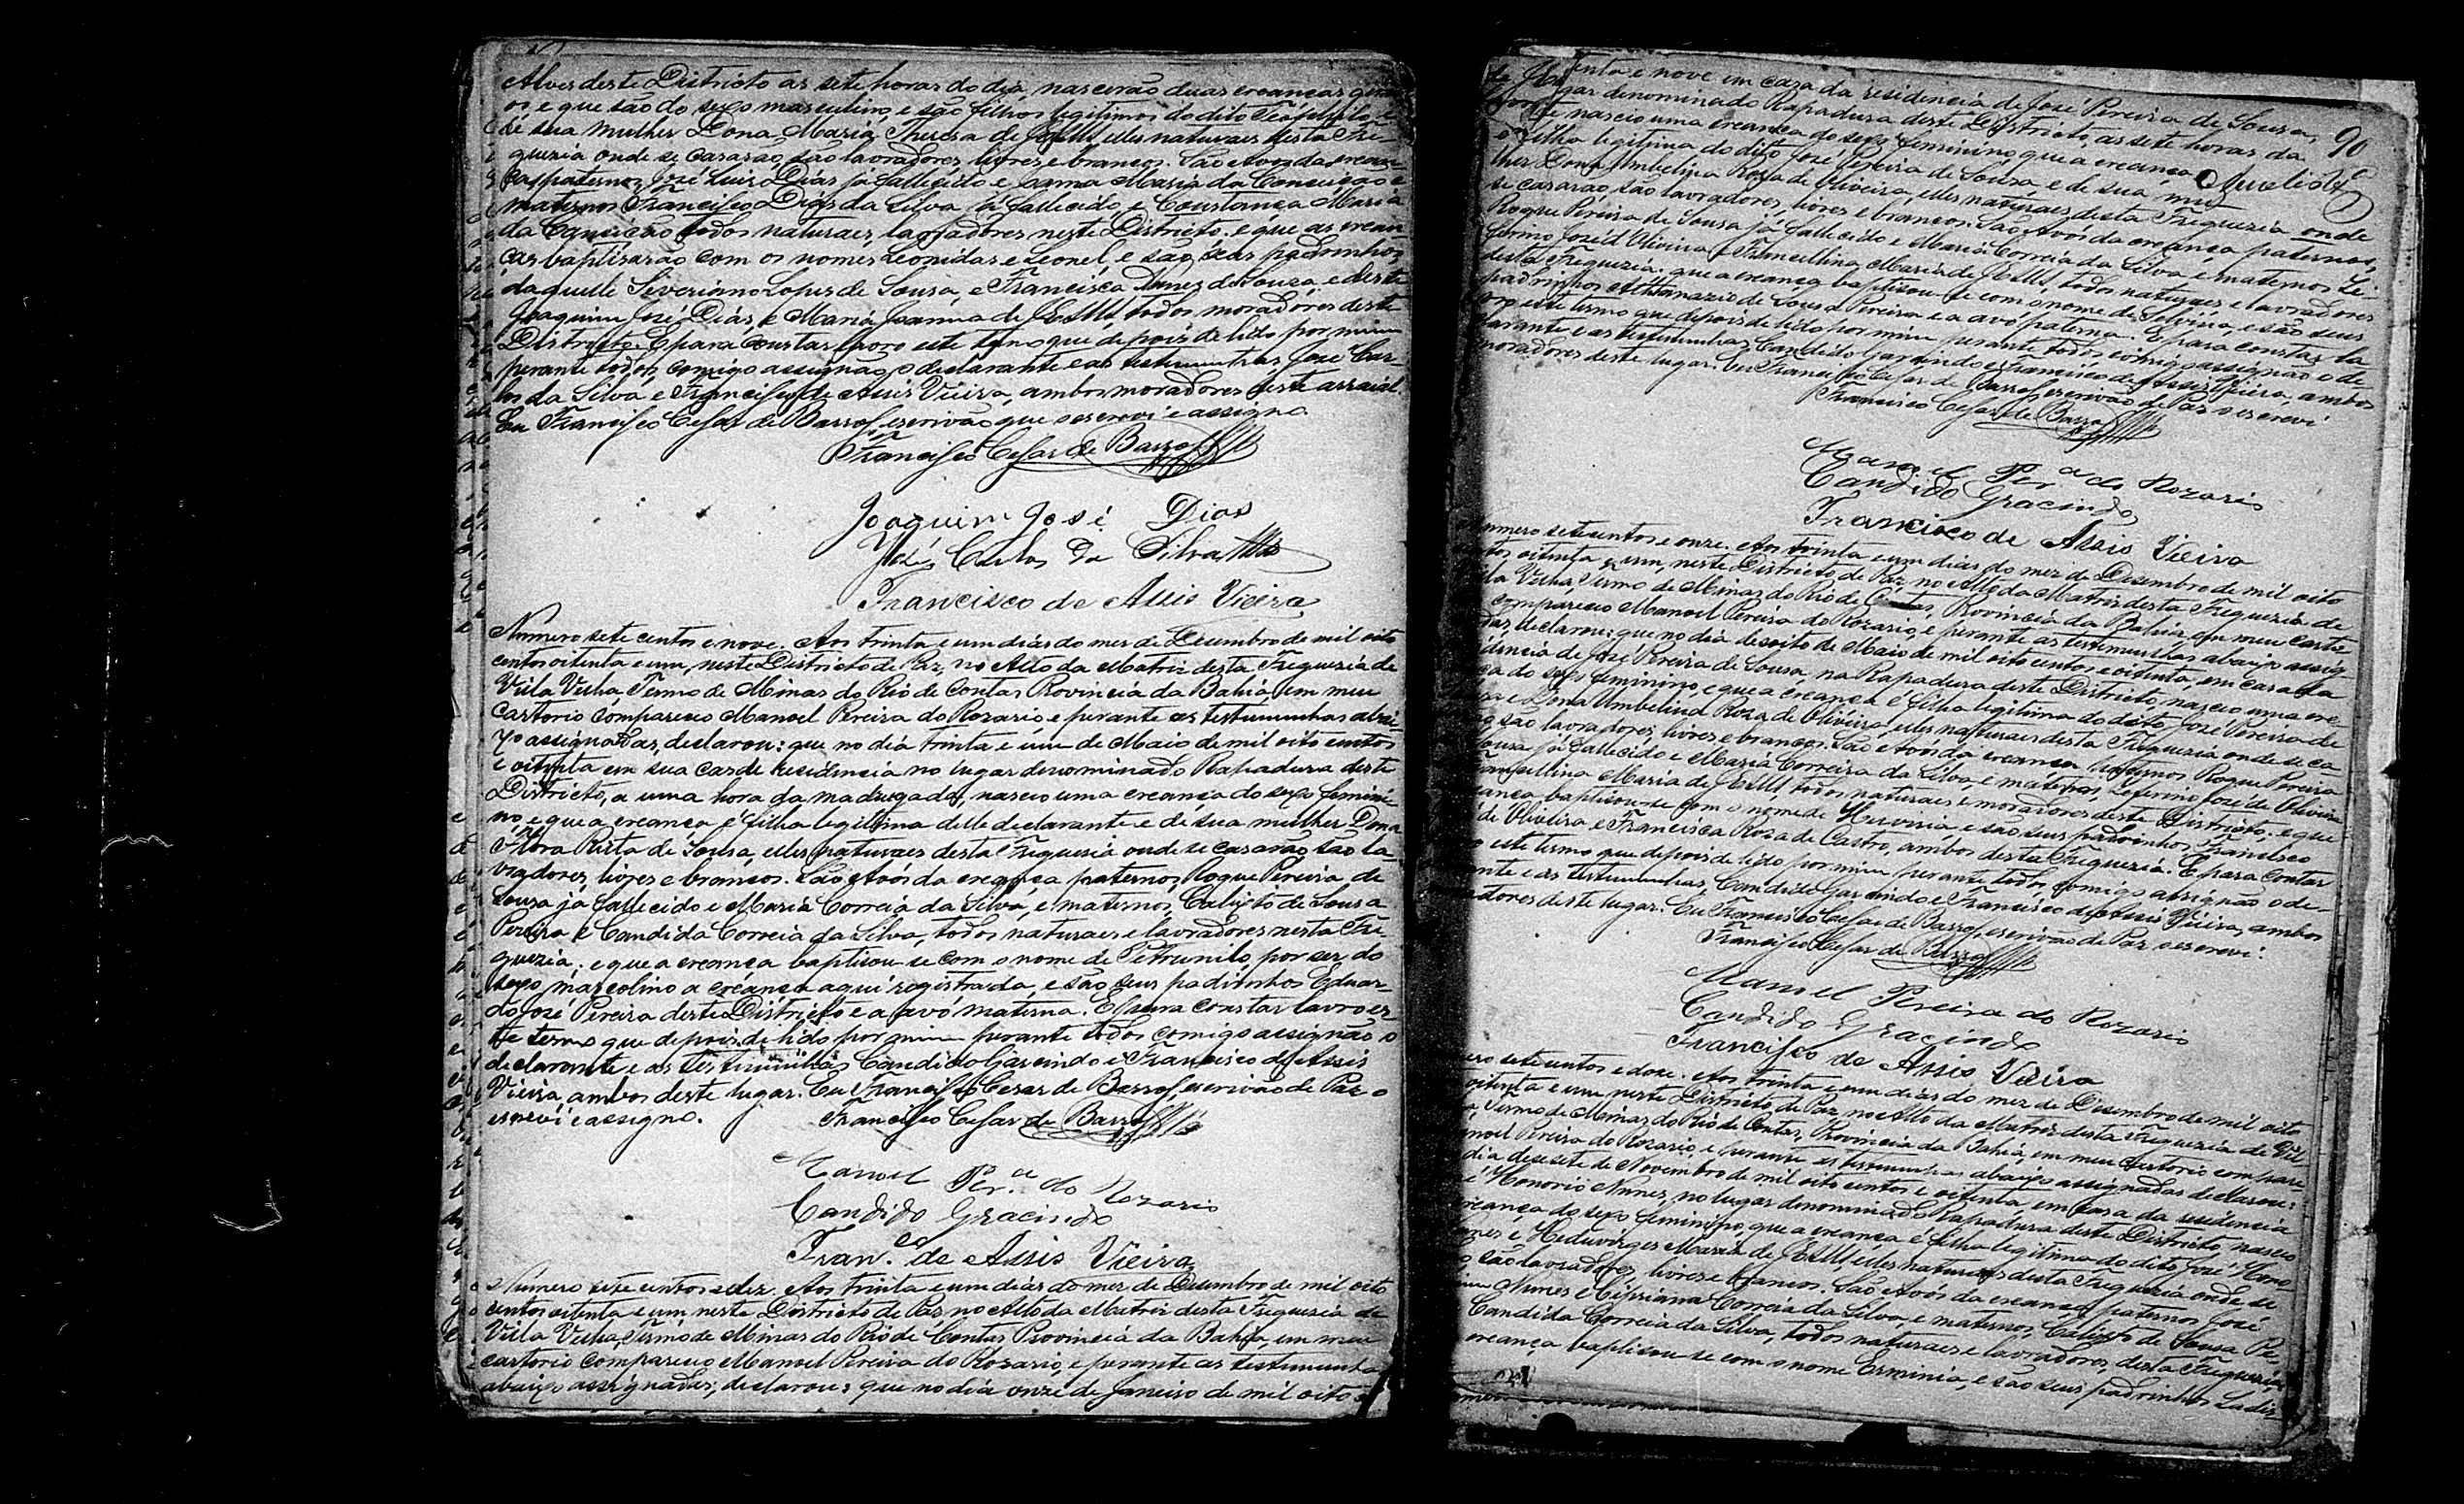 Alves deste Districto as sete horas do dia, nascerão duas creanças
os, e que são do sexo masculino, e são filhos legitimos do dito Teóphilo, e
de sua mulher Dona Maria Theresa de Jesus, elles naturaes desta Fre-
guezia onde se casarão, são lavradores, livres e brancos. São Avós da crean
ças paternos José Luis Dias já fallecido e Joanna Maria da Conceição e
maternos Francisco Dias da Silva já fallecido, e Constança Maria
da Conceição todos naturaes, lavradores neste Districto. e que as crean
ças baptisarão com os nomes Leonidas e Leonel, e são seus padrinhos
daquelle Siveriano Lopes de Sousa, e Francisca Nunes de Souza, e deste
Joaquim José Dias, e Maria Joanna de Jesus, todos moradores deste
Districto. E para constar lavro este termo que depois de lido por mim
perante todos, comigo assignão, o declarante e as testemunhas José Car-
los da Silva e Francisco de Assis Vieira, ambos moradores deste arraial.
Eu Francisco Cesar de Barros, escrivão que o escrevi e assigno
Francisco Cesar de Barros
Joaquim José Dias
José Carlos da Silva
Francisco de Assis Vieira
Numero sete centos e nove. Aos trinta e um dias do mes de Desembro de mil oito
centos oitenta e um, neste Districto de Paz, no Alto da Matriz desta Freguezia de
Villa Velha, Termo de Minas do Rio de Contas Provincia da Bahia, em meu
cartorio compareceo Manoel Pereira do Rozario, e perante as testemunhas abai-
xo assignadas, declarou: que no dia trinta e um de Maio de mil oito centos
e oitenta em sua casa de residencia no lugar denominado Rapadura deste
Districto, a uma hora da madrugada, nasceo uma creança do sexo femini
no, e que a creança é filha legitima delle declarante e de sua mulher Dona
Flóra Rita de Sousa, elles naturaes desta Freguesia onde se casarão, são la
vradores, livres e brancos. São Avós da creança paternos, Roque Pereira de
Sousa já fallecido e Maria Correia da Silva, e maternos, Calixto de Sousa
Pereira e Candida Correia da Silva, todos naturaes e lavradores nesta Fre
guezia. e que a creança baptisou-se com o nome de Petrunilo, por ser do
sexo mascolino a creança aqui registrada, e são seus padrinhos Eduar-
do José Pereira deste Districto e a avó materna. E para constar lavro es
te termo que depois de lido por mim perante todos, comigo assignão o
declarante e as testimunhas Candido Garcindo e Francisco de Assis
Vieira, ambos deste lugar. Eu Francisco Cesar de Barros, escrivão de Paz o
escrevi e assigno. Francisco Cesar de Barros
Manoel Per.ª do Rozario
Candido Gracindo
Fran.co de Assis Vieira
Numero sete centos e dez. Aos trinta e um dias do mes de Desembro de mil oito
centos oitenta e um neste Districto de Paz no Alto da Matriz desta Freguezia de
Villa Velha, Termo de Minas do Rio de Contas Provincia da Bahia, em meu
cartorio compareceo Manoel Pereira do Rosario, e perante as testemunha
abaixo assignadas, declarou: que no dia onze de Janeiro de mil oito
90
tenta e nove em caza da residencia de José Pereira de Sousa,
gar denominado Rapadura deste Districto, as sete horas da
nasceo uma creança do sexo feminino, que a creança
é filha legitima do dito José Pereira de Sousa, e de sua mu-
lher Dona Umbelina Roza de Oliveira, elles naturaes desta Freguezia onde
se casarão, são lavradores, livres e brancos. São Avós da creança paternos,
Roque Pereira de Sousa já fallecido e Maria Correia da Silva e maternos Ze-
ferino José d'Oliveira e Francellina Maria de Jesus, todos naturaes e lavradores
desta Freguezia. que a creança baptisou-se com o nome de Selvina, e são seus
padrinhos Athanazio de Sousa Pereira e a avó paterna. E para constar la-
vro este termo que depois de lido por mim perante todos comigo assignão o de-
clarante e as testemunhas Candido Garcindo e Francisco de Assis Vieira, ambos
moradores deste lugar. Eu Francisco Cesar de Barros, escrivão de Paz o escrevi
Francisco Cesar de Barros
Manoel Per.ª do Rozario
Candido Gracindo
Francisco de Assis Vieira
Numero sete centos e onze. Aos trinta e um dias do mez de Desembro de mil oito
centos oitenta e um, neste Districto de Paz no Alto da Matriz desta Freguezia de
Villa Velha, Termo de Minas do Rio de Contas, Provincia da Bahia, em meu carto
compareceo Manoel Pereira do Rozario, e perante as testemunhas abaixo assig-
das, declarou: que no dia desoito de Maio de mil oito centos e oitenta, em casa da
idencia de José Pereira de Sousa, na Rapadura deste Districto, nasceo uma cre-
ça do sexo feminino e que a creança é filha legitima do dito José Pereira de
sa e Dona Umbelina Roza de Oliveira, elles naturaes desta Freguezia onde se ca-
são lavradores, livres e brancos. São Avós da creança paternos Roque Pereira
Sousa já fallecido e Maria Correia da Silva, e maternos, Zeferino José de Oliveira
Francellina Maria de Jesus todos naturaes e moradores deste Districto. e que
eança baptisou-se com o nome de Hironia e são seus padrinhos Francisco
de Oliveira e Francisca Roza de Castro, ambos desta Freguezia. E para contar
este termo que depois de lido por mim perante todos, comigo assignão o de-
ante e as testemunhas, Candido Garcindo e Francisco de Assis Vieira, ambos
adores deste lugar. Eu Francisco Cesar de Barros, escrivão de Paz o escrevi.
Francisco Cesar de Barros
Manoel Pereira do Rozario
Candido Gracindo
Francisco de Assis Vieira
ero sete centos e doze. Aos trinta e um dias do mez de Desembro de mil oito
oitenta e um neste Districto de Paz, no Alto da Matriz desta Freguezia de Vil
a, Termo de Minas do Rio de Contas, Provincia da Bahia, em meu Cartorio compare-
noel Pereira do Rozario, e perante as testemunhas abaixo assignadas declarou:
dia desesete de Novembro de mil oito centos e oitenta, em casa da residencia
é Honorio Nunes, no lugar denominado Rapadura deste Districto, nasceo
creança do sexo feminino, que a creança é filha legitima do dito José Hono-
unes e Heduverges Maria de Jesus, elles naturaes desta Freguezia onde se
são lavradores, livres e brancos. São Avós da creança paternos José
Nunes e Cipriana Correia da Silva, e maternos, Calixto de Sousa Pe-
Candida Correia da Silva, todos naturaes e lavradores, desta Freguezia,
creança baptisou-se com o nome Erminia, e são seus padrinhos Ladis